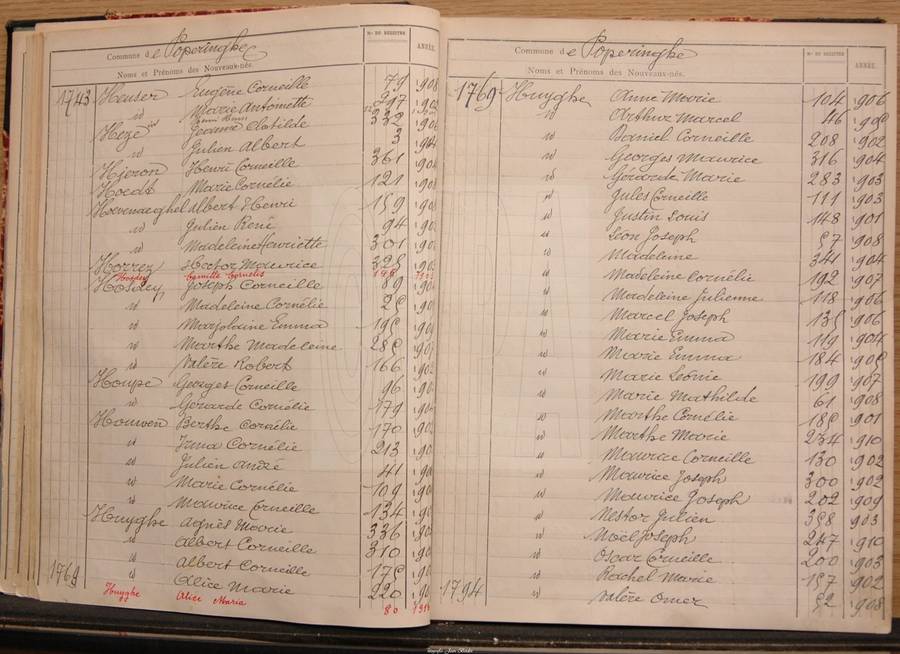 Commune de Poperinghe
Nos DU REGISTRE
ANNÉE.
Noms et Prénoms des Nouveaux-nés.
1743 Heuser Eugène Corneille 79 1908
id Marie Antoinette 297
Heze Jeanne Clotilde 332 190
id Julien Albert 3
Hjeron Henri Corneille 361 190
Hoedt Marie Cornélie 121 190
Hoevenaeghel Albert Henri 159 190
id Julien René 94 190
id Madeleine Henriette 301 190
Horrez Hector Maurice 325 190
Hosdey Camille Cornelis
Hosdey Joseph Corneille 89 190
id Madeleine Cornélie 25 190
id Marjolaine Emma 195 190
id Marthe Madeleine 285 190
id Valère Robert 166 190
Houpe Georges Corneille 96 190
id Gérarde Cornélie 179 190
Houwen Berthe Cornélie 170 190
id Irma Cornélie 213 190
id Julien André 41 190
id Marie Cornélie 109 190
id Maurice Corneille 134 190
Huyghe Agnès Marie 336 190
id Albert Corneille 310 190
id Albert Corneille 175 190
1769 id Alice Marie 220 190
Huyghe Alice Maria 80
Commune de Poperinghe
Nos DU REGISTRE
ANNÉE.
Noms et Prénoms des Nouveaux-nés.
1769 Huyghe Anne Marie 104 1906
id Arthur Marcel 46
id Daniel Corneille 208 1902
id Georges Maurice 316 1904
id Gérarde Marie 283 1903
id Jules Corneille 111 1903
id Justin Louis 148 1901
id Léon Joseph 57 1908
id Madeleine 341 1904
id Madeleine Cornélie 192 1907
id Madeleine Julienne 118 1906
id Marcel Joseph 135 1906
id Marie Emma 119 1904
id Marie Emma 184
id Marie Léonie 199 1907
id Marie Mathilde 61 1908
id Marthe Cornélie 185 1901
id Marthe Marie 234 1910
id Maurice Corneille 130 1902
id Maurice Joseph 300 1902
id Maurice Joseph 202 1909
id Nestor Julien 358 1903
id Noël Joseph 247 1910
id Oscar Corneille 200 1903
id Rachel Marie 157 1902
1794 id Valère Omer 52 1908